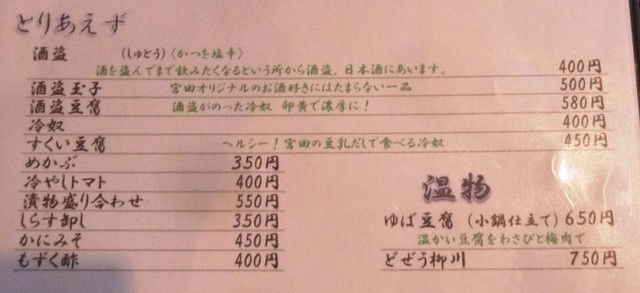 とりあえず
酒盗 (しゅとう)〈かつを塩辛〉
酒を盗んでまで飲みたくなるという所から酒盗、日本酒にあいます。 400円
酒盗玉子 宮田オリジナルのお酒好きにはたまらない一品 500円
酒盗豆腐 酒盗がのった冷奴 卵黄で濃厚に! 580円
冷奴 400円
すくい豆腐 ヘルシー!宮田の豆乳だしで食べる冷奴 450円
めかぶ 350円
冷やしトマト 400円
漬物盛り合わせ 550円
しらす卸し 350円
かにみそ 450円
もずく酢 400円
温物
ゆば豆腐 (小鍋仕立て) 650円
温かい豆腐をわさびと梅肉で
どぜう柳川 750円